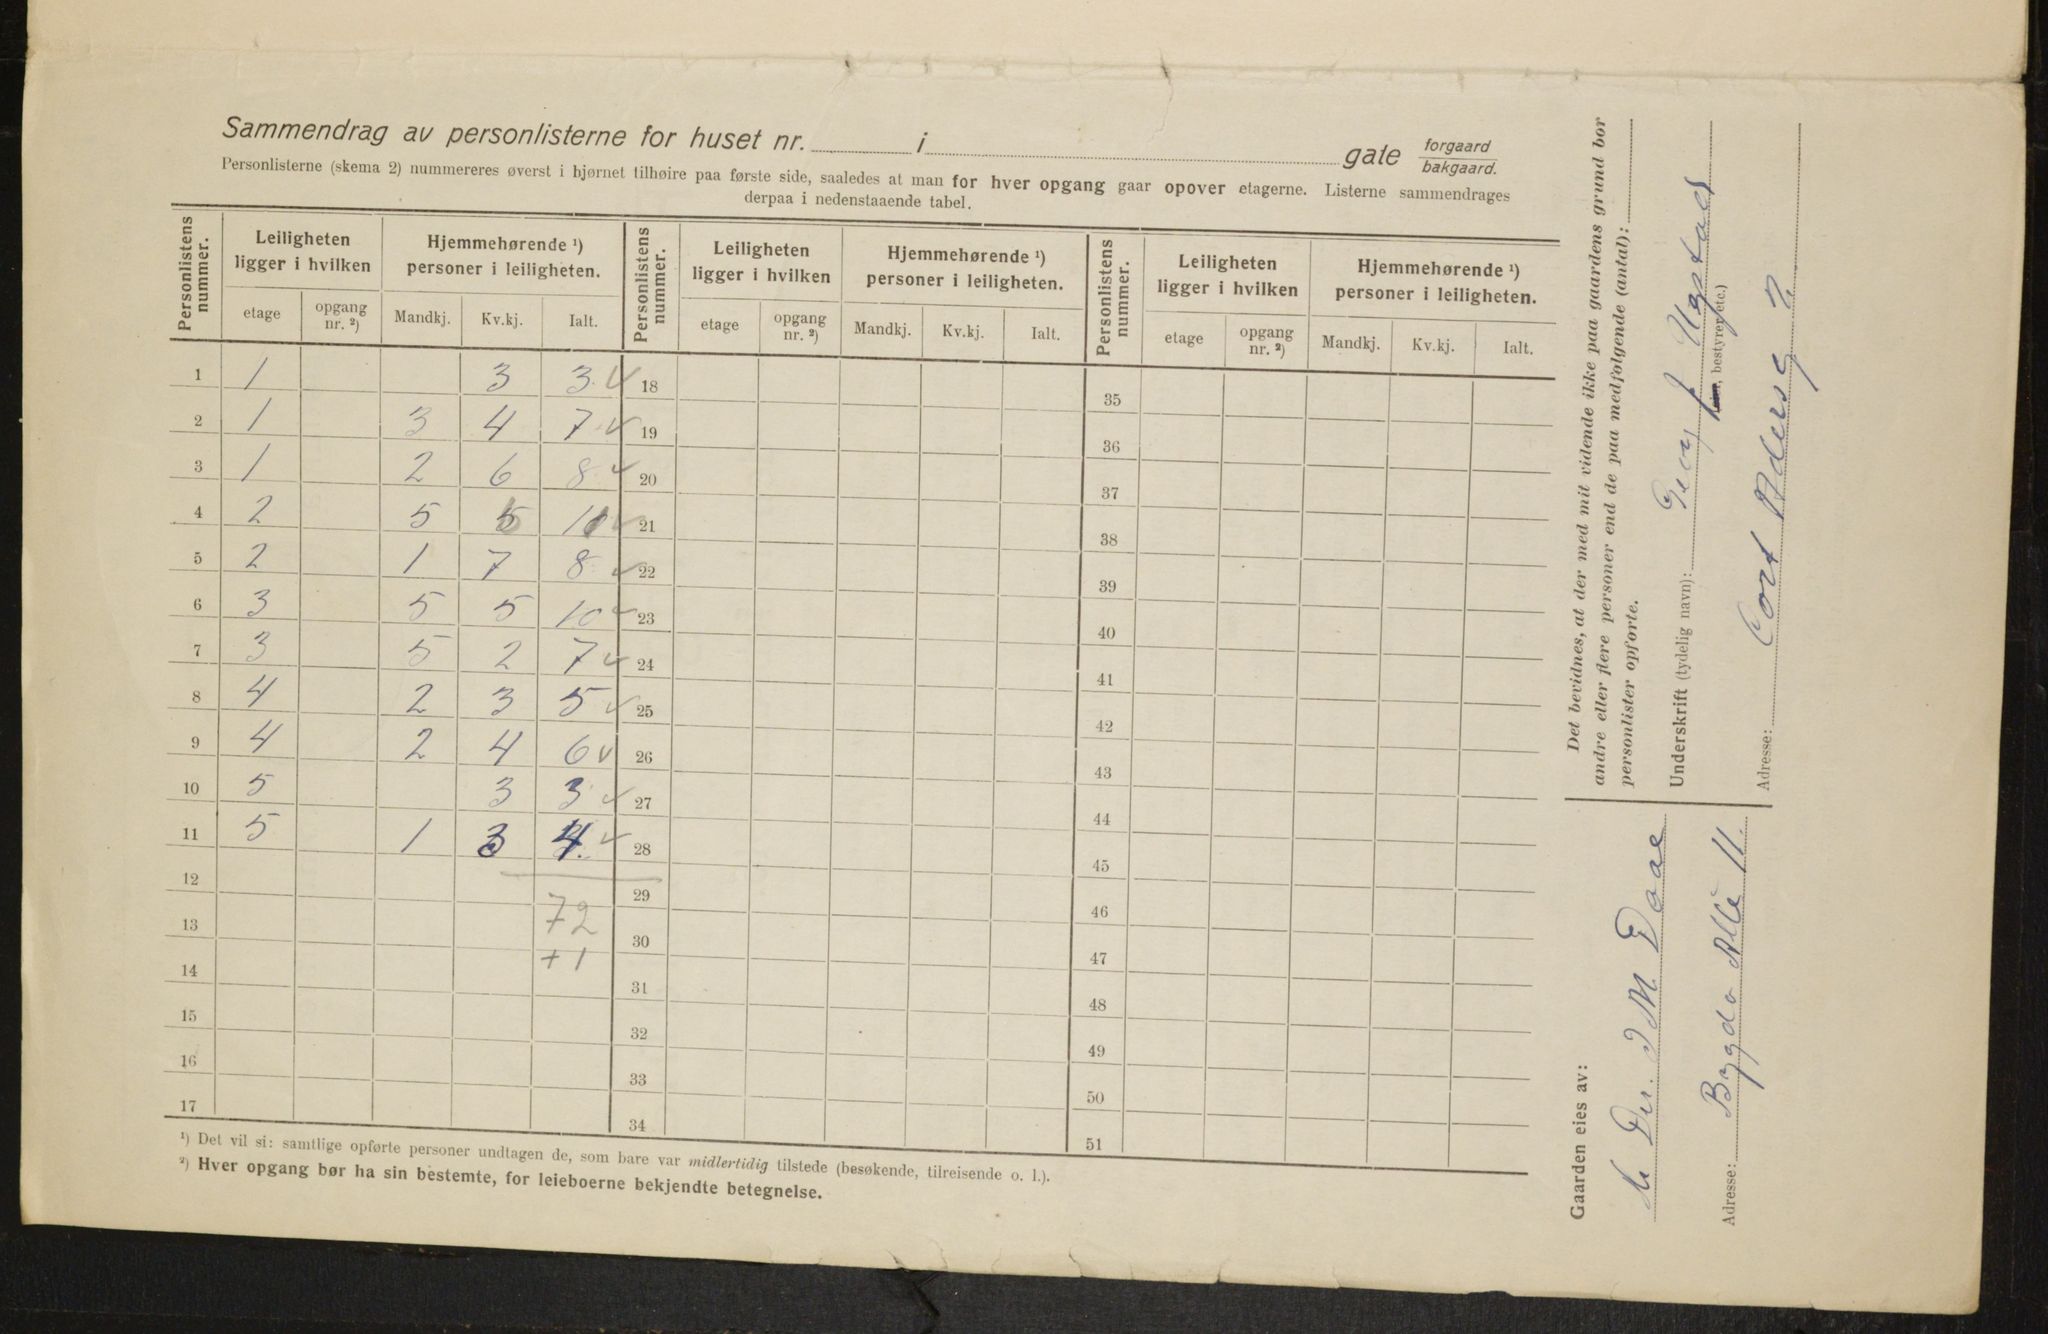 Sammendrag av personlisterne for huset nr. i gate forgaard bakgaard.
Personlisterne (skema 2) nummereres øverst i hjørnet tilhøire paa første side, saaledes at man for hver opgang gaar opover etagerne. Listerne sammendrages
derpaa i nedenstaaende tabel.
Personlistens nummer. Leiligheten ligger i hvilken Hjemmehørende ¹) personer i leiligheten. Personlistens nummer. Leiligheten ligger i hvilken Hjemmehørende ¹) personer i leiligheten. Personlistens nummer. Leiligheten ligger i hvilken Hjemmehørende ¹) personer i leiligheten.
etage opgang nr. ²) Mandkj. Kv.kj. Ialt. etage opgang nr. ²) Mandkj. Kv.kj. Ialt. etage opgang nr. ²) Mandkj. Kv.kj. Ialt.
1 1 3 3 ✓ 18 35
2 1 3 4 7 ✓ 19 36
3 1 2 6 8 ✓ 20 37
4 2 5 11 ✓ 21 38
5 2 1 7 8 ✓ 22 39
6 3 5 5 10 ✓ 23 40
7 3 5 2 7 ✓ 24 41
8 4 2 3 5 ✓ 25 42
9 4 2 4 6 ✓ 26 43
10 5 3 3 ✓ 27 44
11 5 1 3 4 ✓ 28 45
12 29 46
13 72 30 47
14 +1 31 48
15 32 49
16 33 50
17 34 51
¹) Det vil si: samtlige opførte personer undtagen de, som bare var midlertidig tilstede (besøkende, tilreisende o. l.).
²) Hver opgang bør ha sin bestemte, for leieboerne bekjendte betegnelse.
Det bevidnes, at der med mit vidende ikke paa gaardens grund bor
andre eller flere personer end de paa medfølgende (antal):
personlister opførte.
Underskrift (tydelig navn): Georg J
, bestyrer, etc.)
Adresse: Cort Adersg 2
Gaarden eies av:
Dr. J M Daae
Adresse: Bygdø Alle 11.